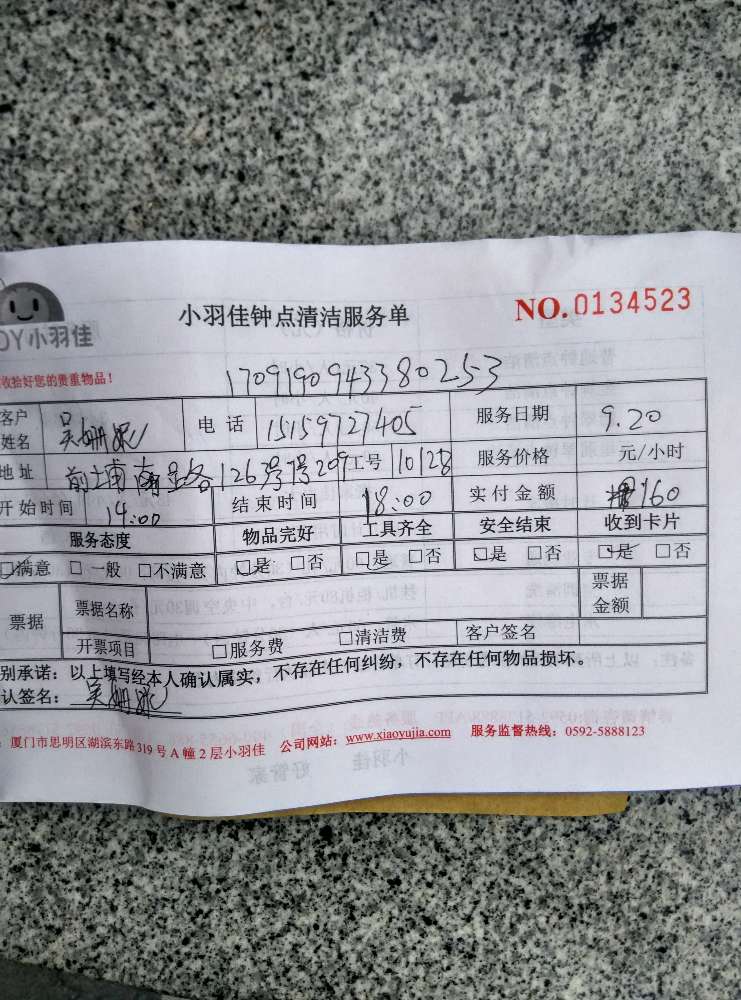 OY小羽佳
小羽佳钟点清洁服务单
NO.0134523
收拾好您的贵重物品！
1709190943380253
客户姓名 吴姗妮 电话 15159727405 服务日期 9.20
地址 前埔南路126号7号209 工号 10128 服务价格 元/小时
开始时间 14:00 结束时间 18:00 实付金额 160
服务态度 物品完好 工具齐全 安全结束 收到卡片
☑满意 □一般 □不满意 ☑是 □否 ☑是 □否 □是 □否 ☑是 □否
票据 票据名称 票据金额
开票项目 □服务费 □清洁费 客户签名
别承诺：以上填写经本人确认属实，不存在任何纠纷，不存在任何物品损坏。
认签名：吴姗妮
：厦门市思明区湖滨东路319号A幢2层小羽佳 公司网站：www.xiaoyujia.com 服务监督热线：0592-5888123